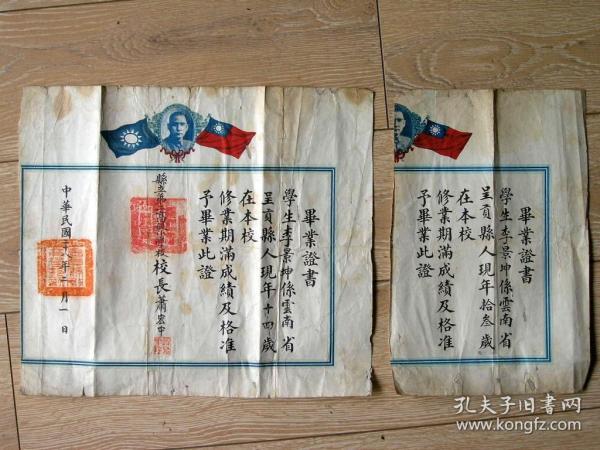 畢業證書
學生李景坤係雲南省
呈貢縣人現年十四歲
在本校
修業期滿成績及格准
予畢業此證
校長蕭宏中
中華民國二八年二月一日
畢業證書
學生李景坤係雲南省
呈貢縣人現年拾叁歲
在本校
修業期滿成績及格准
予畢業此證
孔夫子旧书网
www.kongfz.com